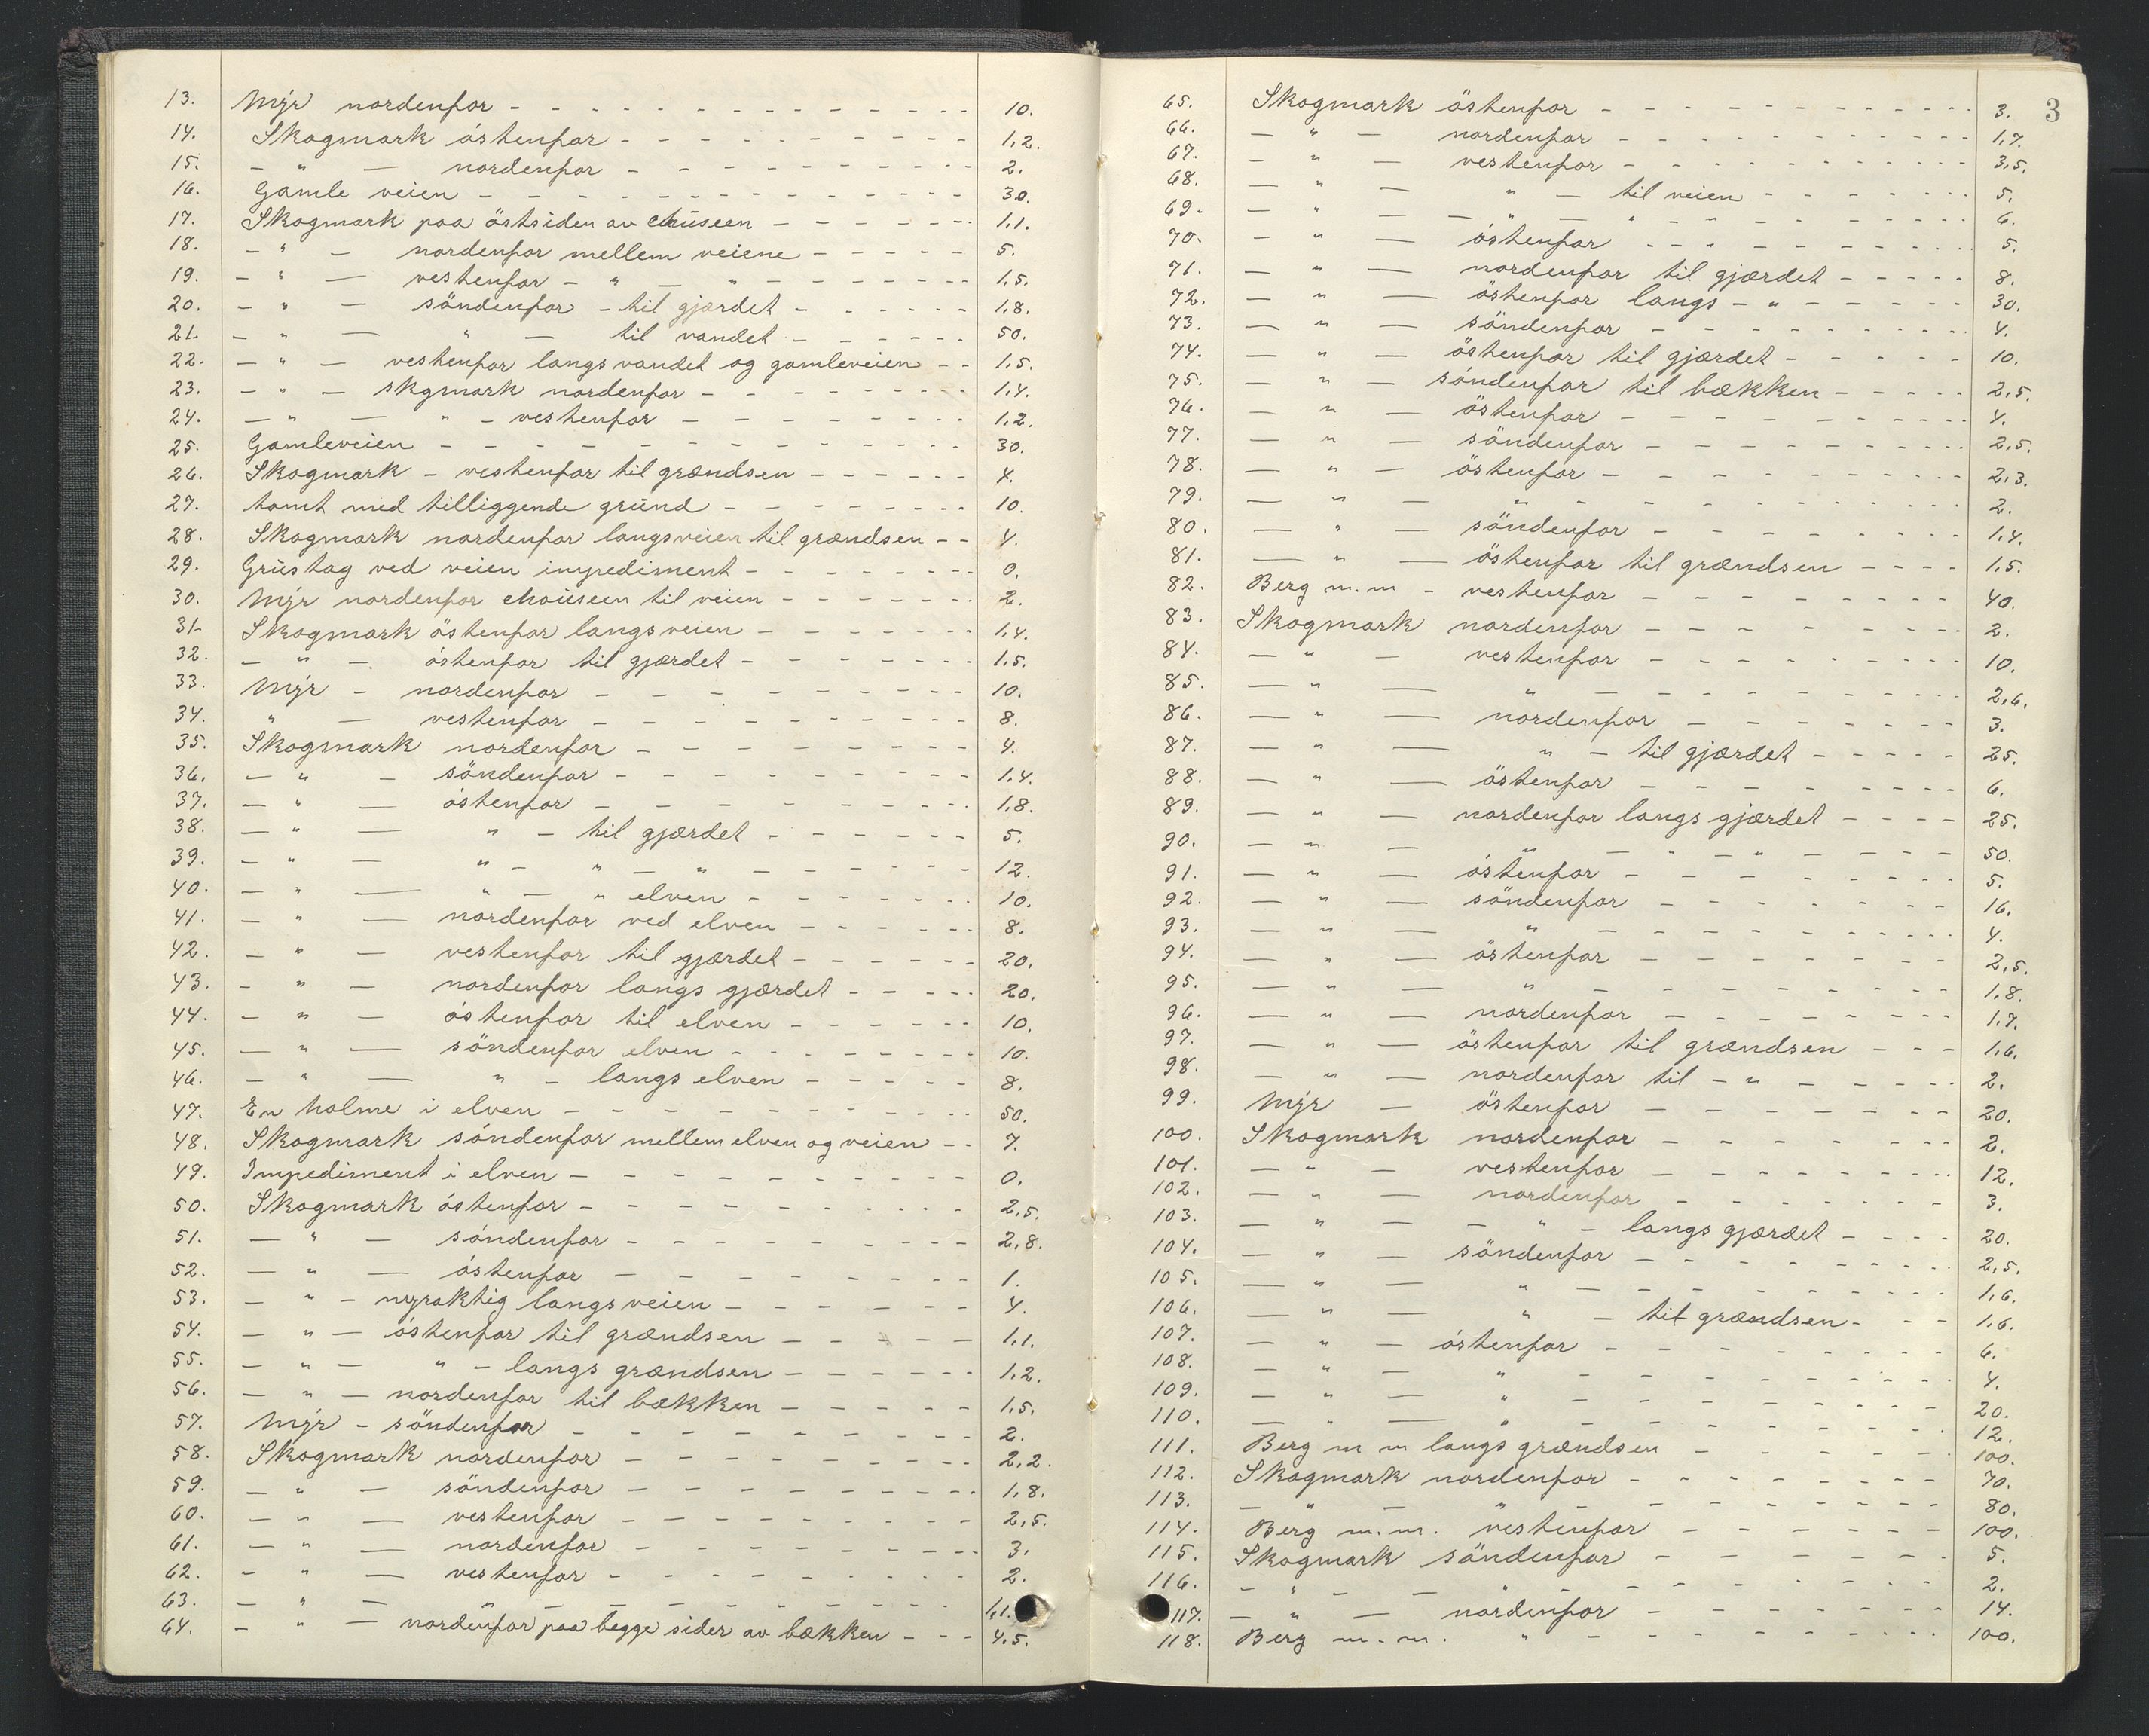 13. Myr nordenfor - - - - - - - - - - - - - - 10.
14. Skogmark östenfor - - - - - - - - - - - 1,2.
15. - " — nordenfor - - - - - - - - - - 2.
16. Gamle veien - - - - - - - - - - - - - - 30.
17. Skogmark paa östsiden av chauseen - - - - - - 1,1.
18. - " - nordenfor mellem veiene - - - - - 5.
19. - " — vestenfor - " - " - - - - - - - 1,5.
20. - " — söndenfor - til gjærdet - - - - - - 1,8.
21. - " — " — til vandet - - - - - - 50.
22. - " - vestenfor langs vandet og gamleveien - - 1,5.
23. - " - skgmark nordenfor - - - - - - - 1,4.
24. - " — " - vestenfor - - - - - - - 1,2.
25. Gamleveien - - - - - - - - - - - - - 30.
26. Skogmark - vestenfor til grændsen - - - - - - 4.
27. tomt med tilliggende grund - - - - - - - - 10.
28. Skogmark nordenfor langs veien til grændsen - - 4.
29. Grustag ved veien impediment - - - - - - - - 0.
30. Myr nordenfor chauseen til veien - - - - - - 2.
31. Skogmark östenfor langs veien - - - - - - - 1,4.
32. - " - östenfor til gjærdet - - - - - - - 1,5.
33. Myr - nordenfor - - - - - - - - - - 10.
34. " — vestenfor - - - - - - - - - - 8.
35. Skogmark nordenfor - - - - - - - - 4.
36. - " - söndenfor - - - - - - - - - 1,4.
37. - " — östenfor - - - - - - - - - - 1,8.
38. - " — " - til gjærdet - - - - - - 5.
39. - " — " - " - " - - - - - - - 12.
40. - " — " - " elven - - - - - - - 10.
41. - " — nordenfor ved elven - - - - - - 8.
42. - " - vestenfor til gjærdet - - - - - - 20.
43. - " - nordenfor langs gjærdet - - - - - 20.
44. - " - östenfor til elven - - - - - - 10.
45. - " — söndenfor elven - - - - - - - - 10.
46. - " — " - langs elven - - - - - 8.
47. En holme i elven - - - - - - - - - - - 50.
48. Skogmark söndenfor mellem elven og veien - - 7.
49. Impediment i elven - - - - - - - - - - 0.
50. Skogmark östenfor - - - - - - - - - - 2,5.
51. - " - söndenfor - - - - - - - - - 2,8.
52. - " — östenfor - - - - - - - - - 1.
53. - " - myraktig langs veien - - - - - - 4.
54. - " - östenfor til grændsen - - - - - 1,1.
55. - " - " - langs grændsen - - - - - - 1,2.
56. - " - nordenfor til bækken - - - - - - 1,5.
57. Myr - söndenfor - - - - - - - - - - 2.
58. Skogmark nordenfor - - - - - - - - - 2,2.
59. - " - söndenfor - - - - - - - - - 1,8.
60. - " — vestenfor - - - - - - - - - 2,5.
61. - " — nordenfor - - - - - - - - - 3.
62. - " — vestenfor - - - - - - - - - 2.
63. - " — - - - - - - - - - - 1,1.
64. - " — nordenfor paa begge sider av bækken - - - 4,5.
3
65. Skogmark östenfor - - - - - - - - - - - - 3.
66. - " - nordenfor - - - - - - - - - - - 1,7.
67. - " — vestenfor - - - - - - - - - - - 3,5.
68. - " — " - til veien - - - - - - - 5.
69. - " — - " - " - " - - - - - - - 6.
70. - " — östenfor - - - " - - - - - - - 5.
71. - " — nordenfor til gjærdet - - - - - 8.
72. - " — östenfor langs - " - - - - - - 30.
73. — " — söndenfor - - - - - - - - - - 4.
74. — " - östenfor til gjærdet - - - - - 10.
75. — " - söndenfor til bækken - - - - - 2,5.
76. — " - östenfor - - - - - - - - - - 4.
77. — " - söndenfor - - - - - - - - - - 2,5.
78. — " - östenfor - - - - - - - - - - 2,3.
79. — " - " - - - - - - - - - - 2.
80. — " - söndenfor - - - - - - - - - 1,4.
81. — " — östenfor til grændsen - - - - 1,5.
82. Berg m.m - vestenfor - - - - - - - - 40.
83. Skogmark nordenfor - - - - - - - - 2.
84. - " - vestenfor - - - - - - - - - 10.
85. — " — " - - - - - - - - - 2,6.
86. — " — nordenfor - - - - - - - - 3.
87. - " — " - til gjærdet - - - - - 25.
88. — " — östenfor - - - - - - - - - 6.
89. - " — nordenfor langs gjærdet - - - - 25.
90. - " — " - " - " - - - - - 50.
91. - " — östenfor - - - - - - - - - 5.
92. — " — söndenfor - - - - - - - - 16.
93. — " — " - - - - - - - - - - 4.
94. — " — östenfor - - - - - - - - 2,5.
95. — " — " - - - - - - - - - 1,8.
96. — " — nordenfor - - - - - - - - 1,7.
97. — " — östenfor til grændsen - - - 1,6.
98. — " — nordenfor til - " - - - - - 2.
99. Myr — östenfor - - - - - - - - 20.
100. Skogmark nordenfor - - - - - - - - 2.
101. — " - vestenfor - - - - - - - - - 12.
102. — " — nordenfor - - - - - - - - 3.
103. — " — - " - langs gjærdet - - - - 20.
104. — " - söndenfor - - - - - - - - - 2,5.
105. — " — " - - - - - - - - - 1,6.
106. — " — " - til grændsen - - - 1,6.
107. — " - östenfor - - - - - - - - 6.
108. - " - " - - - - - - - - - 4.
109. - " — " - - - - - - - - - 20.
110. — " — " - - - - - - - - 12.
111. Berg m m langs grændsen - - - - - - 100.
112. Skogmark nordenfor - - - - - - - - 70.
113. — " - " - - - - - - - - 80.
114. Berg m.m. vestenfor - - - - - - 100.
115. Skogmark söndenfor - - - - - - - 5.
116. - " - — " - - - - - - - - 2.
117. - " — nordenfor - - - - - - - 14.
118. Berg m.m. " - - - - - - - - - 100.